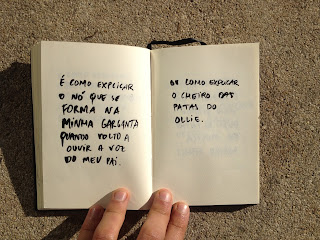 É COMO EXPLICAR
O NÓ QUE SE
FORMA NA
MINHA GARGANTA
QUANDO VOLTO A
OUVIR A VOZ
DO MEU PAI.
OU COMO EXPLICAR
O CHEIRO DAS
PATAS DO
OLLIE.